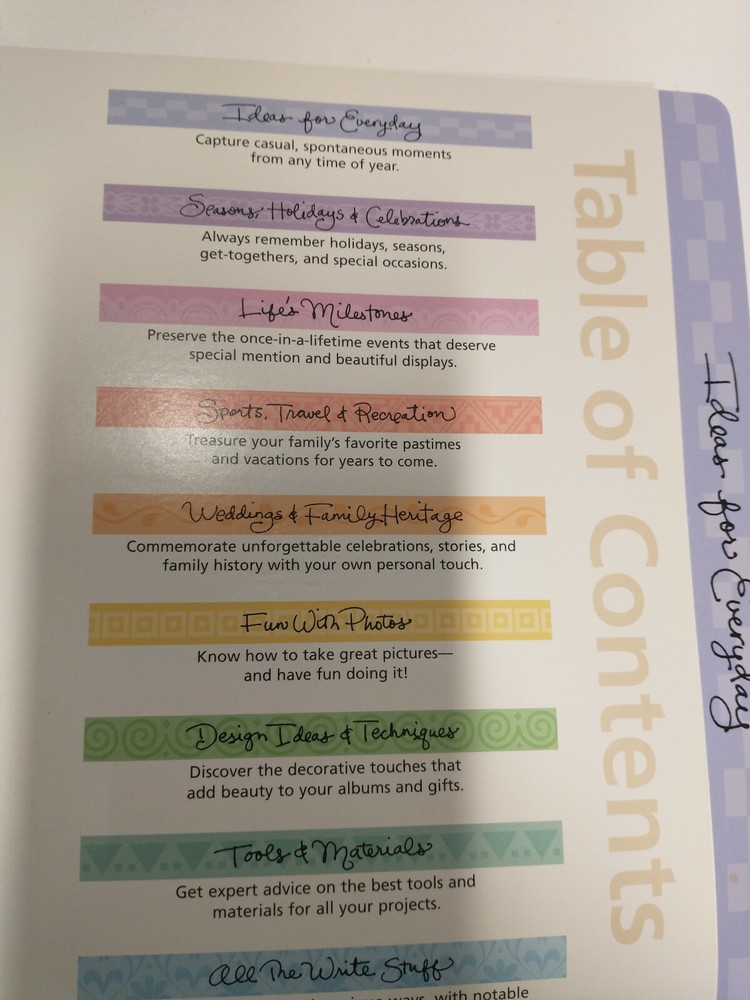 Ideas for Everyday
Capture casual, spontaneous moments
from any time of year.
Seasons, Holidays & Celebrations
Always remember holidays, seasons,
get-togethers, and special occasions.
Life's Milestones
Preserve the once-in-a-lifetime events that deserve
special mention and beautiful displays.
Sports, Travel & Recreation
Treasure your family's favorite pastimes
and vacations for years to come.
Weddings & Family Heritage
Commemorate unforgettable celebrations, stories, and
family history with your own personal touch.
Fun With Photos
Know how to take great pictures—
and have fun doing it!
Design Ideas & Techniques
Discover the decorative touches that
add beauty to your albums and gifts.
Tools & Materials
Get expert advice on the best tools and
materials for all your projects.
All The Write Stuff
ways, with notable
Table of Contents
Ideas for Everyday